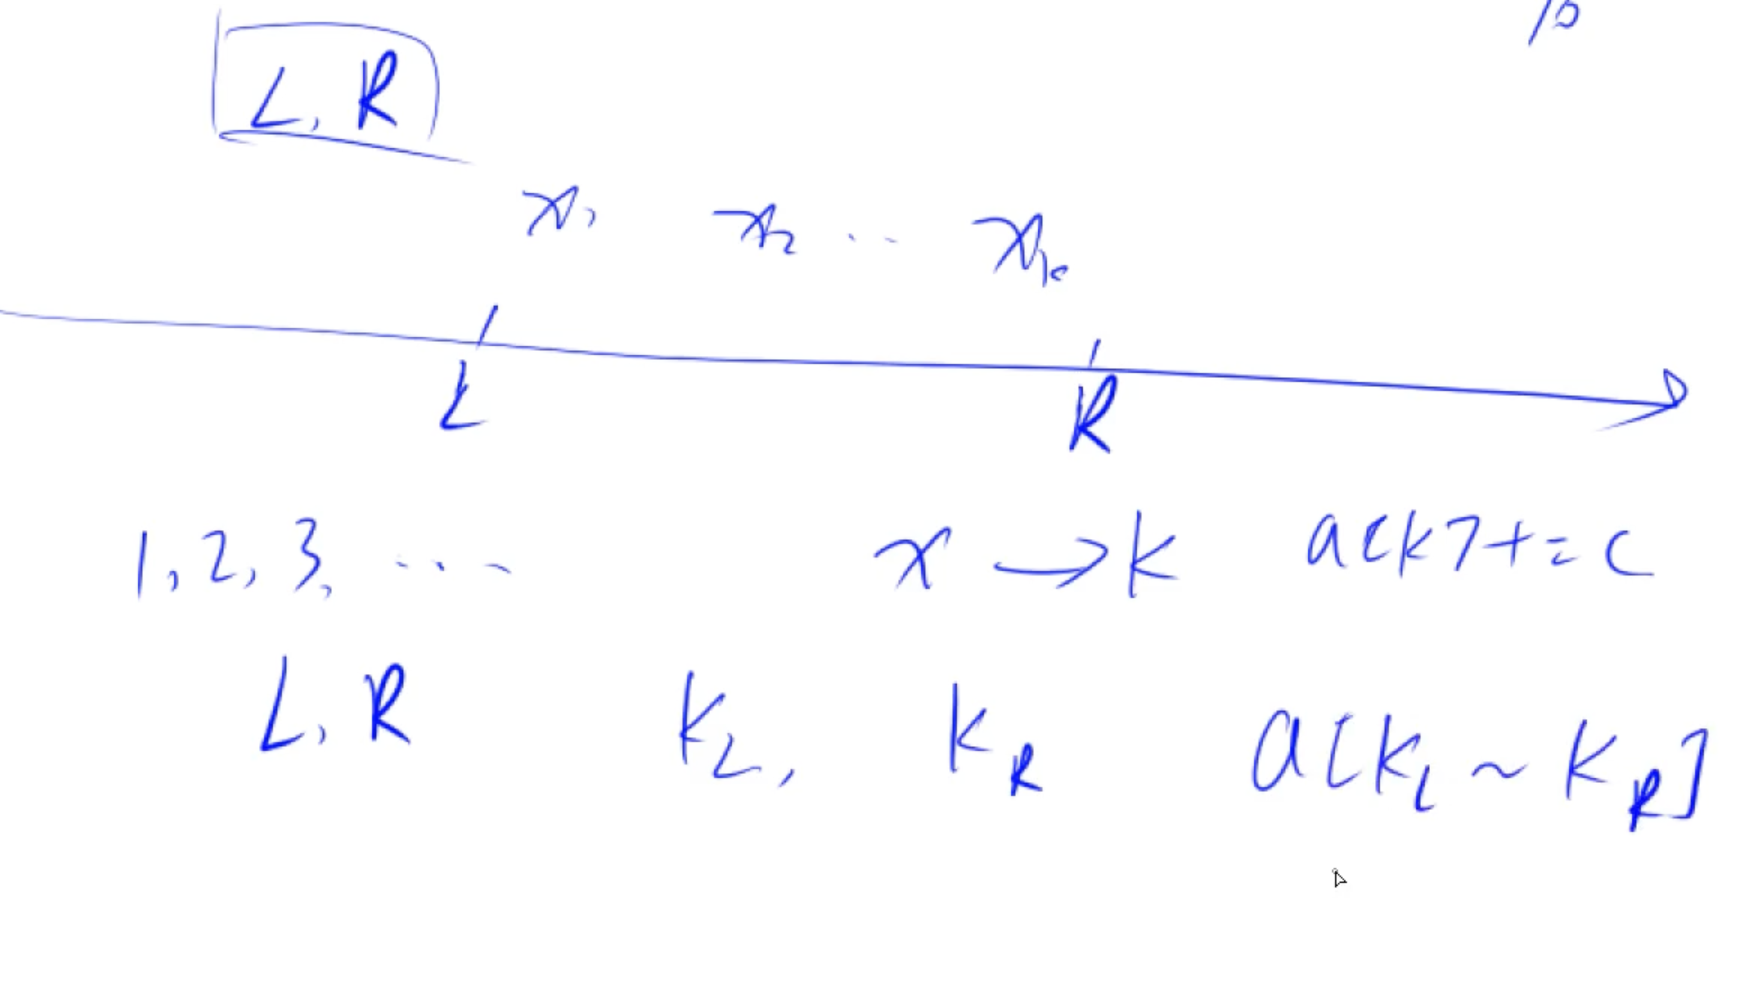 10
L, R
x₁, x₂ ·· xₖ
L R
1, 2, 3, ···
x → k a[k] += c
L, R k_L, k_R a[k_L ~ k_R]